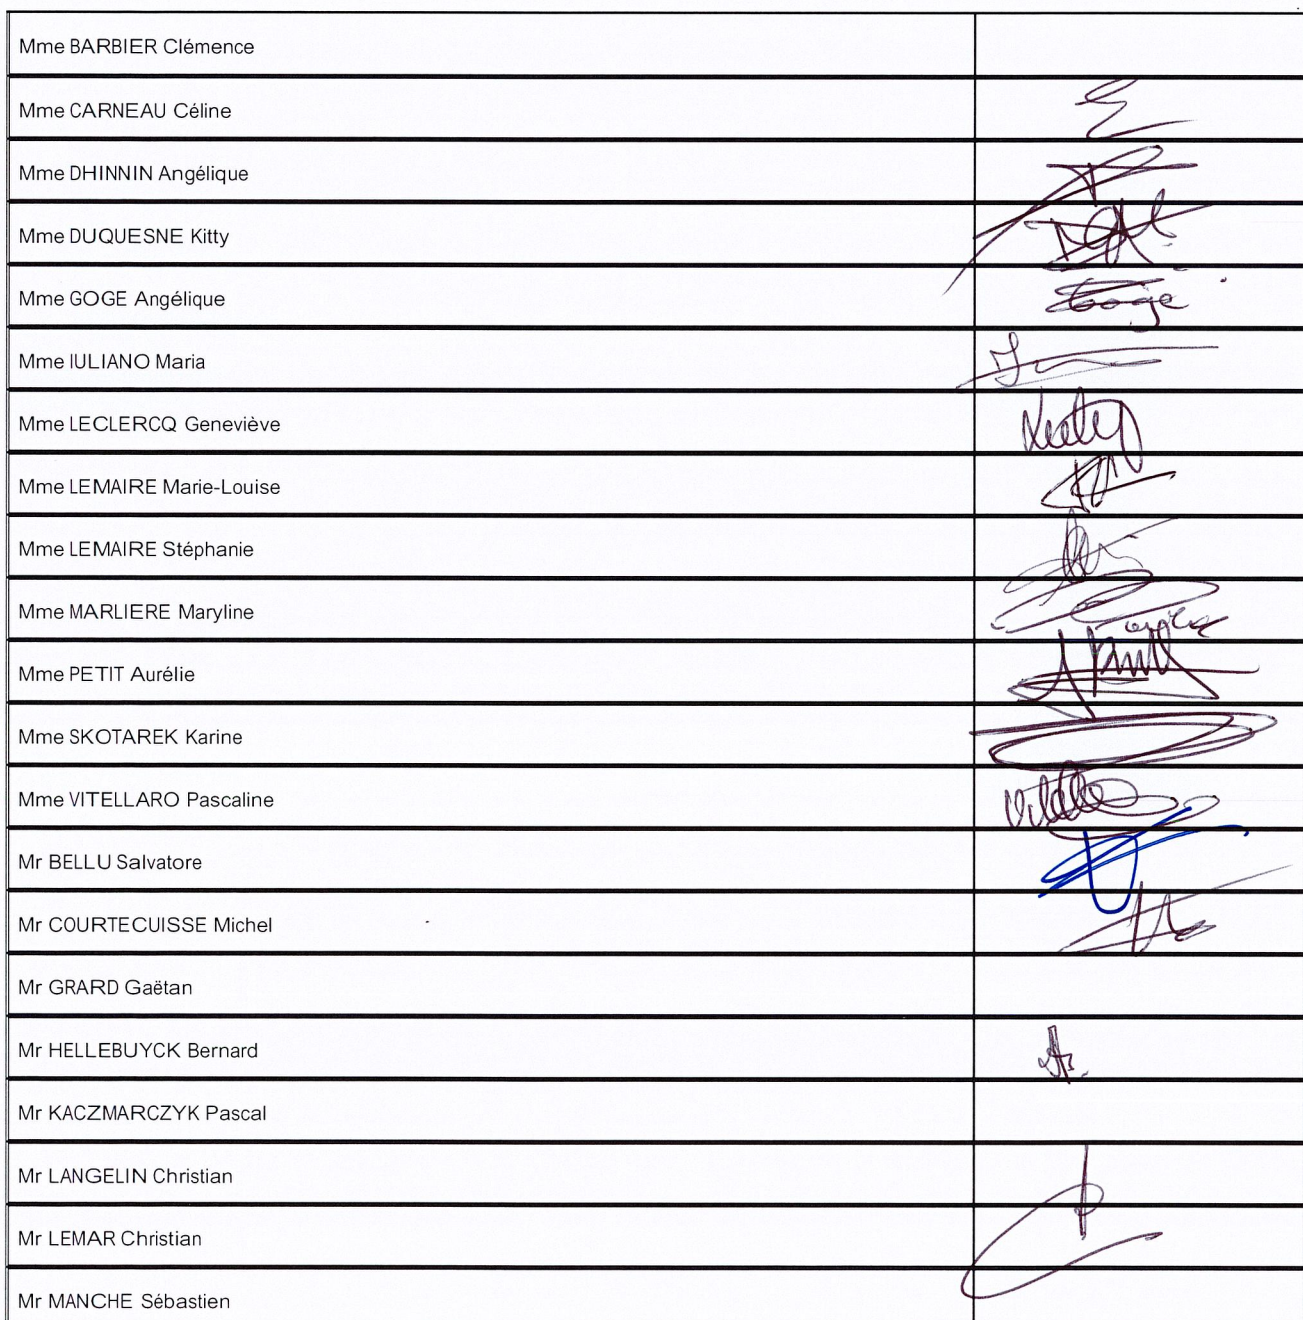 Mme BARBIER Clémence
Mme CARNEAU Céline
Mme DHINNIN Angélique
Mme DUQUESNE Kitty
Mme GOGE Angélique
Goge
Mme IULIANO Maria
Mme LECLERCQ Geneviève
Mme LEMAIRE Marie-Louise
Mme LEMAIRE Stéphanie
Mme MARLIERE Maryline
Mme PETIT Aurélie
Mme SKOTAREK Karine
Mme VITELLARO Pascaline
Mr BELLU Salvatore
Mr COURTECUISSE Michel
Mr GRARD Gaëtan
Mr HELLEBUYCK Bernard
Mr KACZMARCZYK Pascal
Mr LANGELIN Christian
Mr LEMAR Christian
Mr MANCHE Sébastien